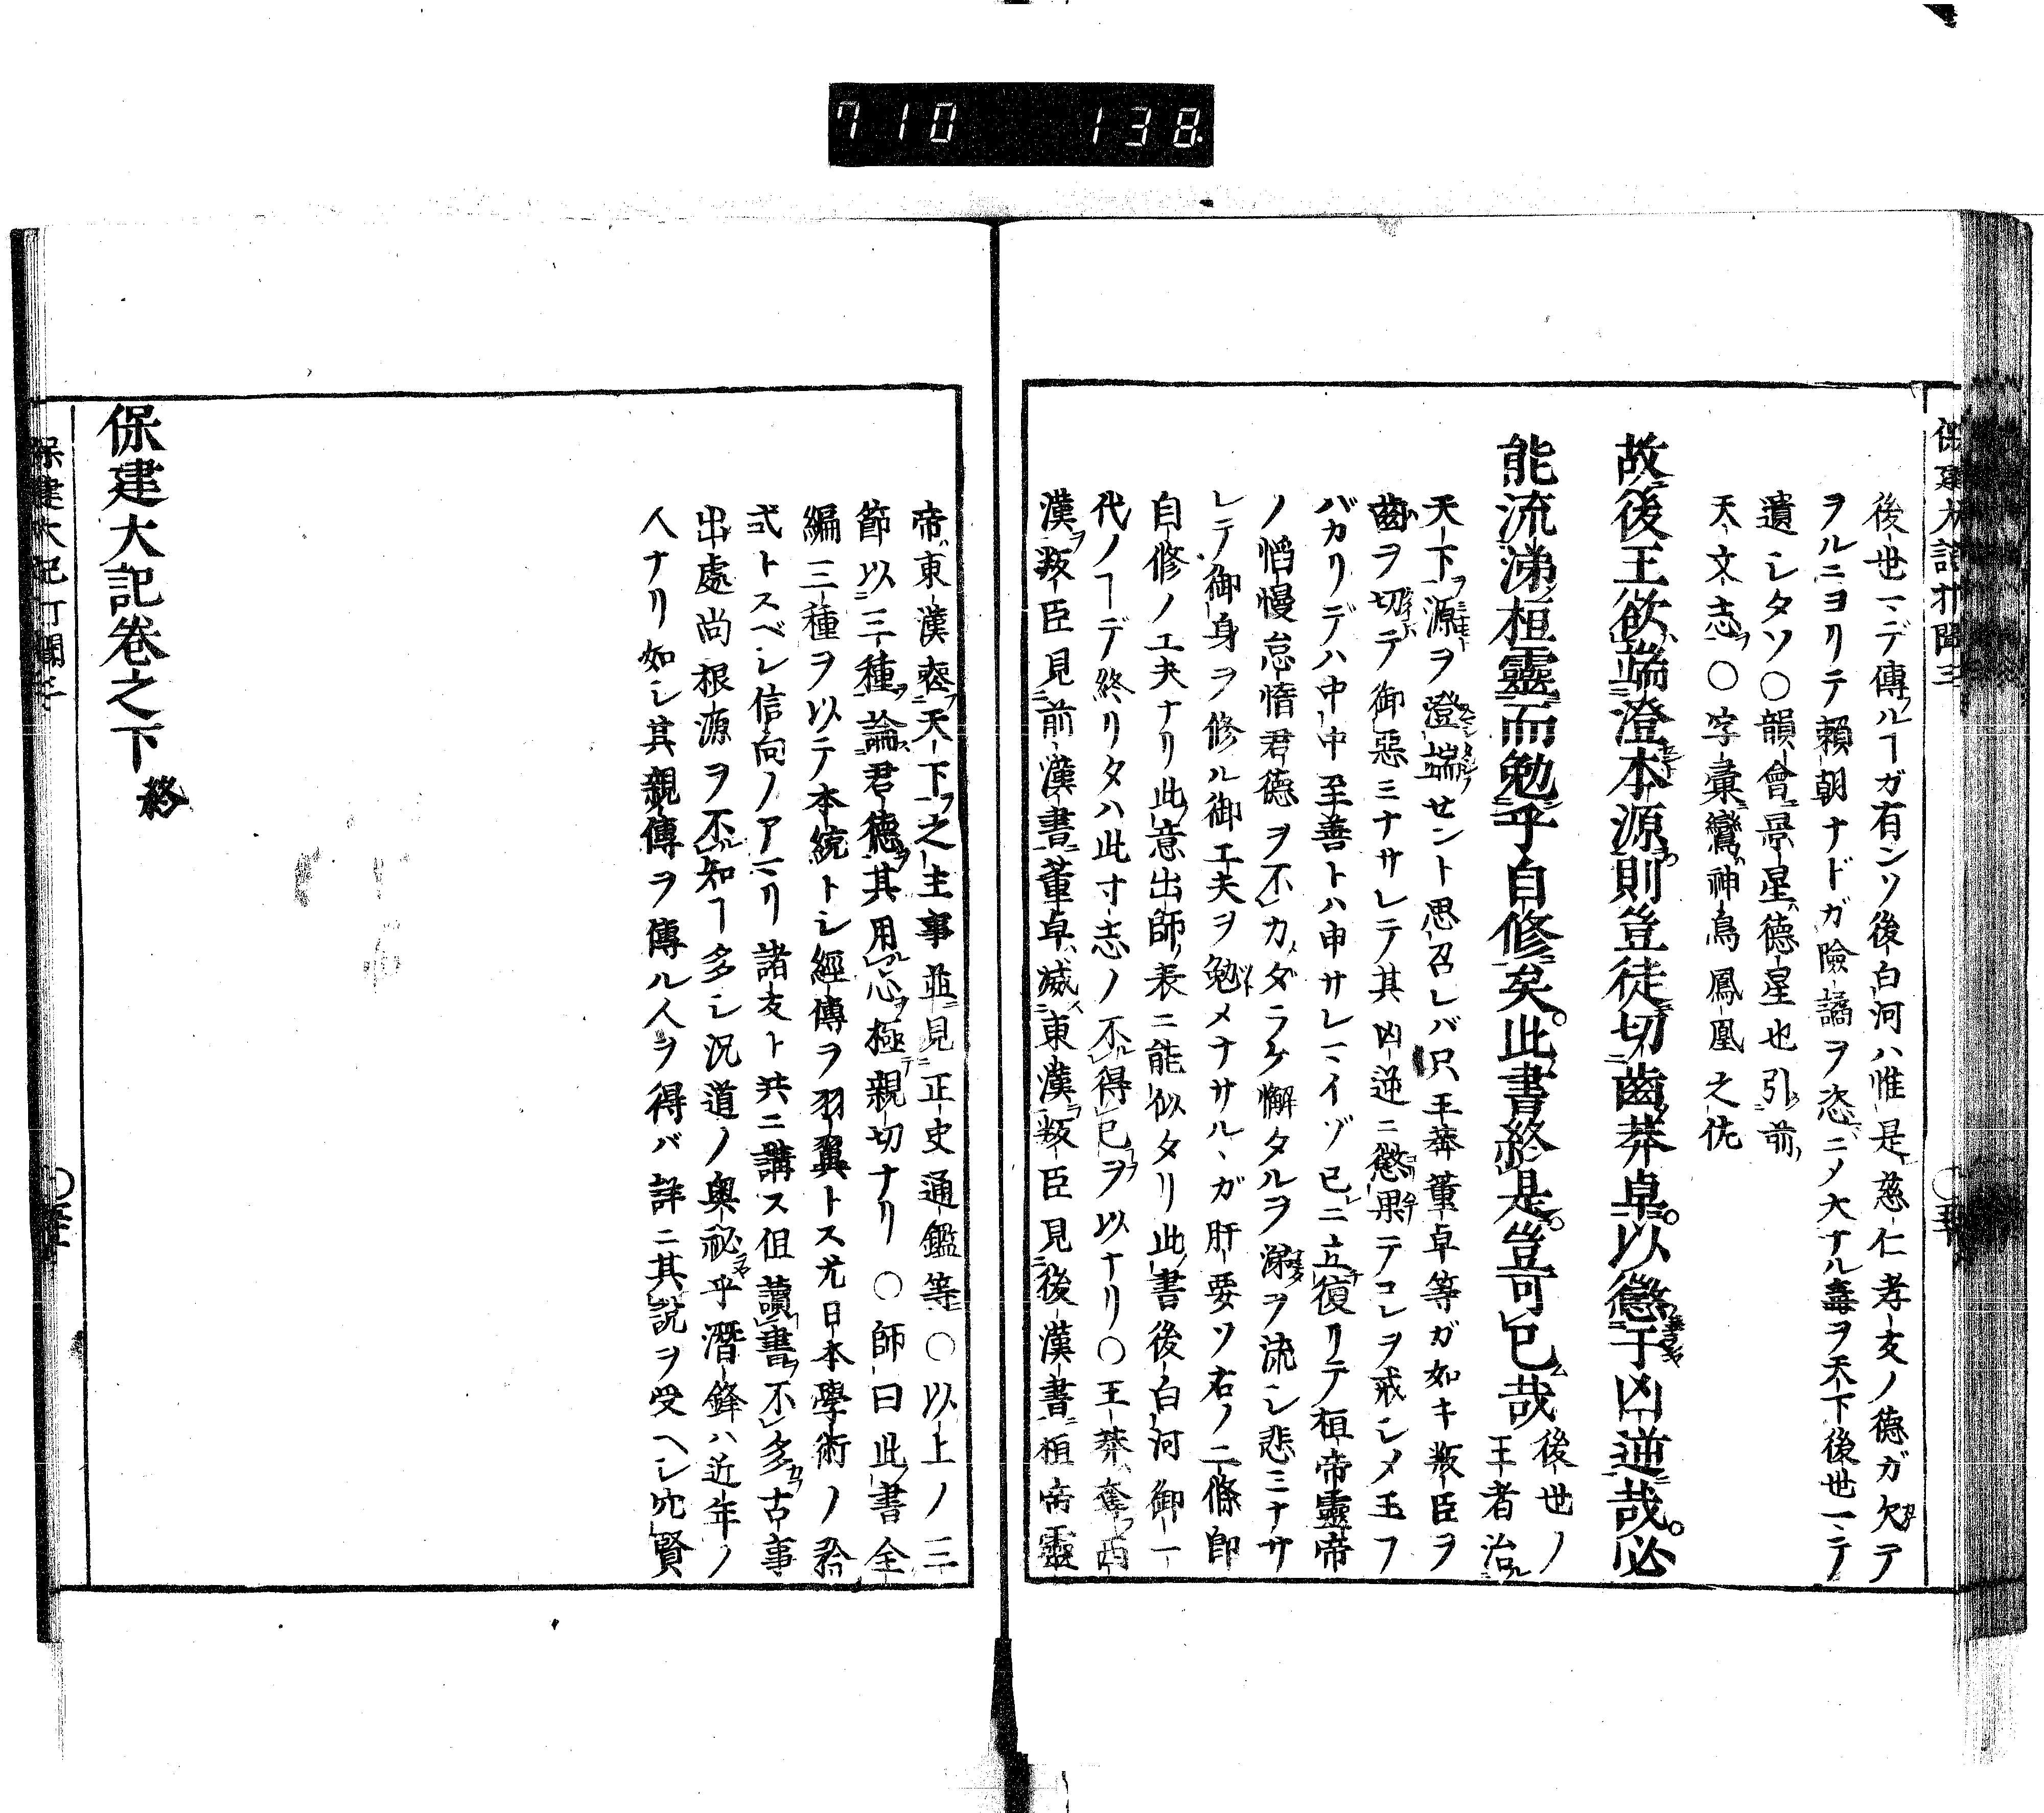 710 138
後世ニ、デ傳ルヿガ有ンソ後白河ハ惟是慈仁孝友ノ德ガ欠テ
ヲルニヨリテ賴朝ナドガ險譎ヲ恣ニメ大ナル毒ヲ天下後世ニ、テ
遺シタソ〇韻會景星德星也引前
天文志〇字彙鸞神鳥鳳凰之佐
故後王欲端澄本源則豈徒切齒莽卓。以懲于凶逆哉。必
能流涕桓靈而勉乎自修矣。此書終是。豈可已哉
後世ノ
王者治
天下源ヲ澄端セント思召レバ只王莽董卓等ガ如キ叛臣ヲ
齒ヲ切テ御惡ミナサレテ其凶逆ニ懲果テコレヲ戒シメ玉フ
バカリデハ中中至善トハ申サレヌイゾ已ニ立復リテ桓帝靈帝
ノ慆慢怠惰君德ヲ不カダラケ懈タルヲ涕ヲ流シ悲ミナサ
レテ御身ヲ修ル御工夫ヲ勉メナサル、ガ肝要ソ右ノ二條即
自修ノ工夫ナリ此意出師表ニ能似タリ此書後白河御一
代ノヿデ終リタハ此寸志ノ不得已ヲ以ナリ〇王莽奪西
漢叛臣見前漢書董卓滅東漢叛臣見後漢書桓帝靈
帝東漢忝天下之主事並見正史通鑑等〇以上ノ三
節以三種論君德其用心極親切ナリ〇師曰此書全
編三種ヲ以テ本統トシ經傳ヲ羽翼トス尤日本學術ノ
式トスベシ信向ノアマリ諸友ト共ニ講ス但讀書不多古事
出處尚根源ヲ不知ヿ多シ況道ノ奧祕乎潛鋒ハ近年ノ
人ナリ如シ其親傳ヲ傳ル人ヲ得バ詳ニ其說ヲ受ヘシ
保建大記卷之下 終